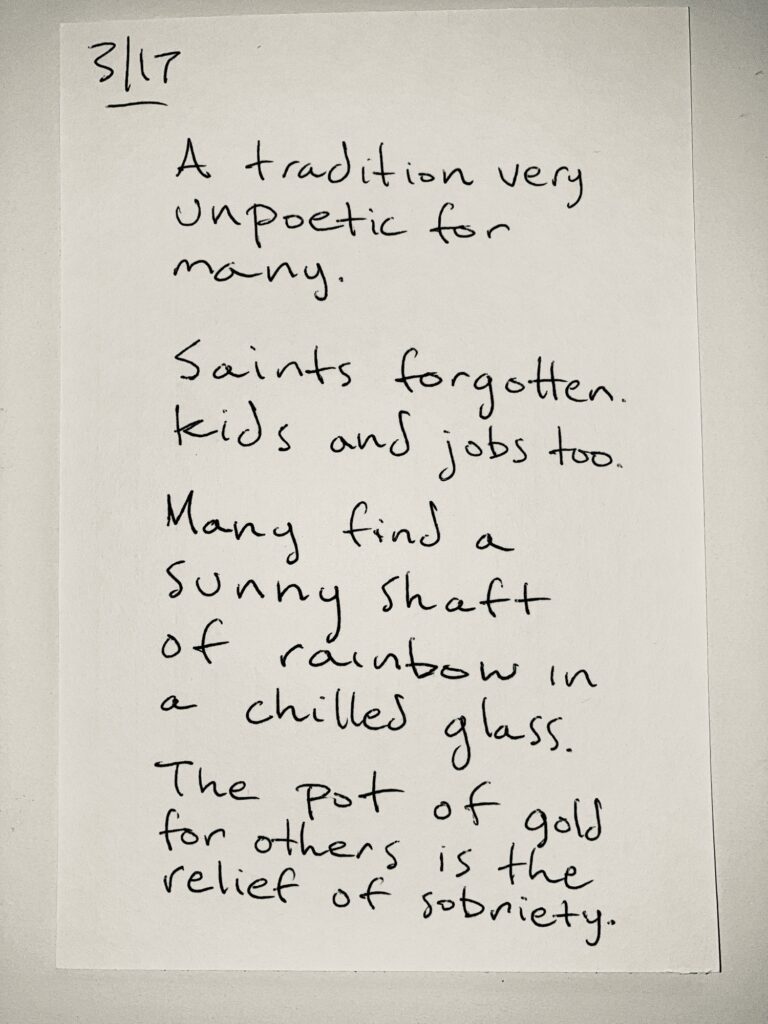 3/17
A tradition very
unpoetic for
many.
Saints forgotten.
kids and jobs too.
Many find a
sunny shaft
of rainbow in
a chilled glass.
The pot of gold
for others is the
relief of sobriety.